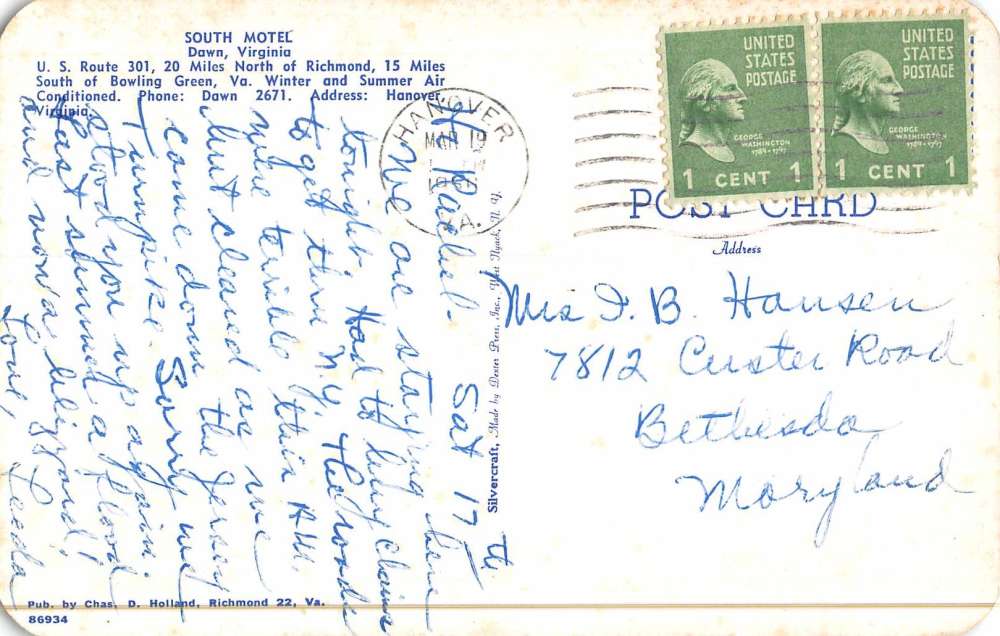 SOUTH MOTEL
Dawn, Virginia
U. S. Route 301, 20 Miles North of Richmond, 15 Miles
South of Bowling Green, Va. Winter and Summer Air
Conditioned. Phone: Dawn 2671. Address: Hanover,
Virginia.
Rachel. Sat 17th
We are staying here
tonight. Had to buy chains
to get thru N.Y. the roads
were terrible this A.M.
but cleared as we
came down the Jersey
Turnpike. Sorry we
stood you up again.
Last summer a flood!
and now a blizzard!
Love, Leeda
Pub. by Chas. D. Holland, Richmond 22, Va.
86934
Silvercraft, Made by Dexter Press, Inc., West Nyack, N. Y.
HANOVER
MAR 19
VA.
UNITED
STATES
POSTAGE
GEORGE
WASHINGTON
1789-1797
1 CENT 1
UNITED
STATES
POSTAGE
GEORGE
WASHINGTON
1789-1797
1 CENT 1
POST CARD
Address
Mrs I. B. Hansen
7812 Custer Road
Bethesda
Maryland